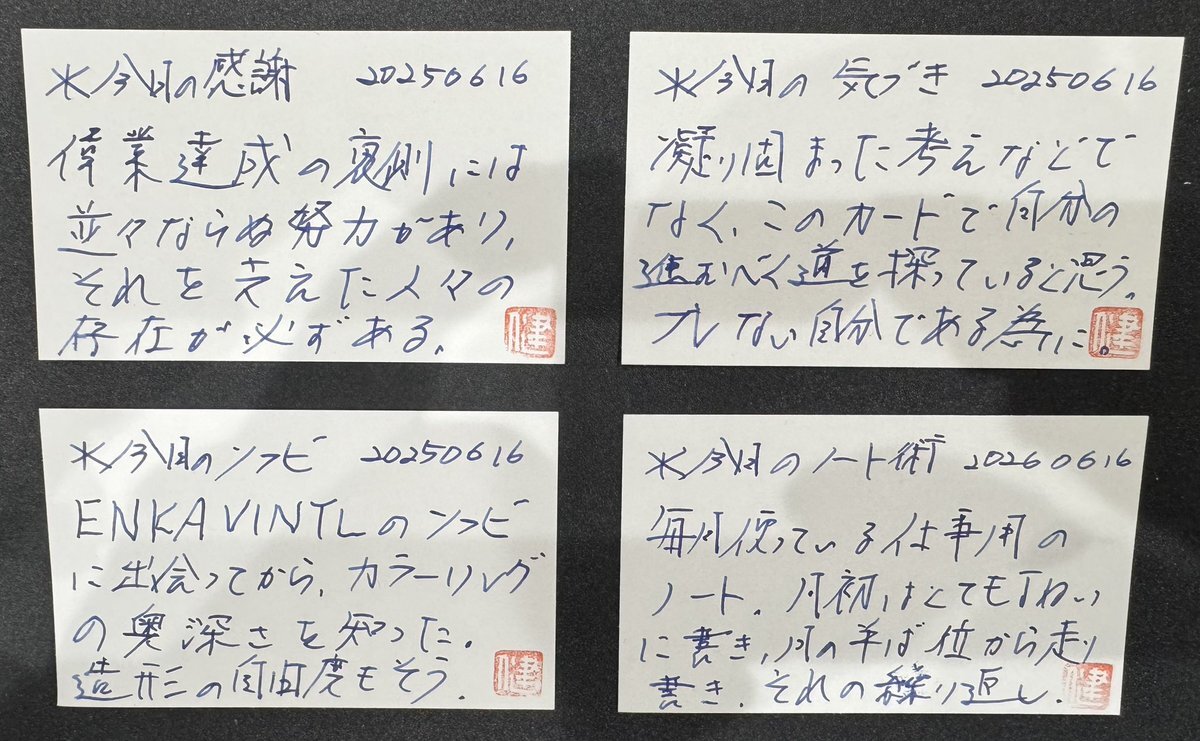 ※今日の感謝 20250616
偉業達成の裏側には
並々ならぬ努力があり、
それを支えた人々の
存在が必ずある。
健
※今日の気づき 20250616
凝り固まった考えなどで
なく、このカードで自分の
進むべく道を探っていると思う。
ブレない自分である為に。
健
※今日のソフビ 20250616
ENKAVINTLのソフビ
に出会ってから、カラーリング
の奥深さを知った。
造形の自由度もそう。
健
※今日のノート術 20260616
毎月使っている仕事用の
ノート。月初はとても丁ねい
に書き、月の半ば位から走り
書き。それの繰り返し。
健